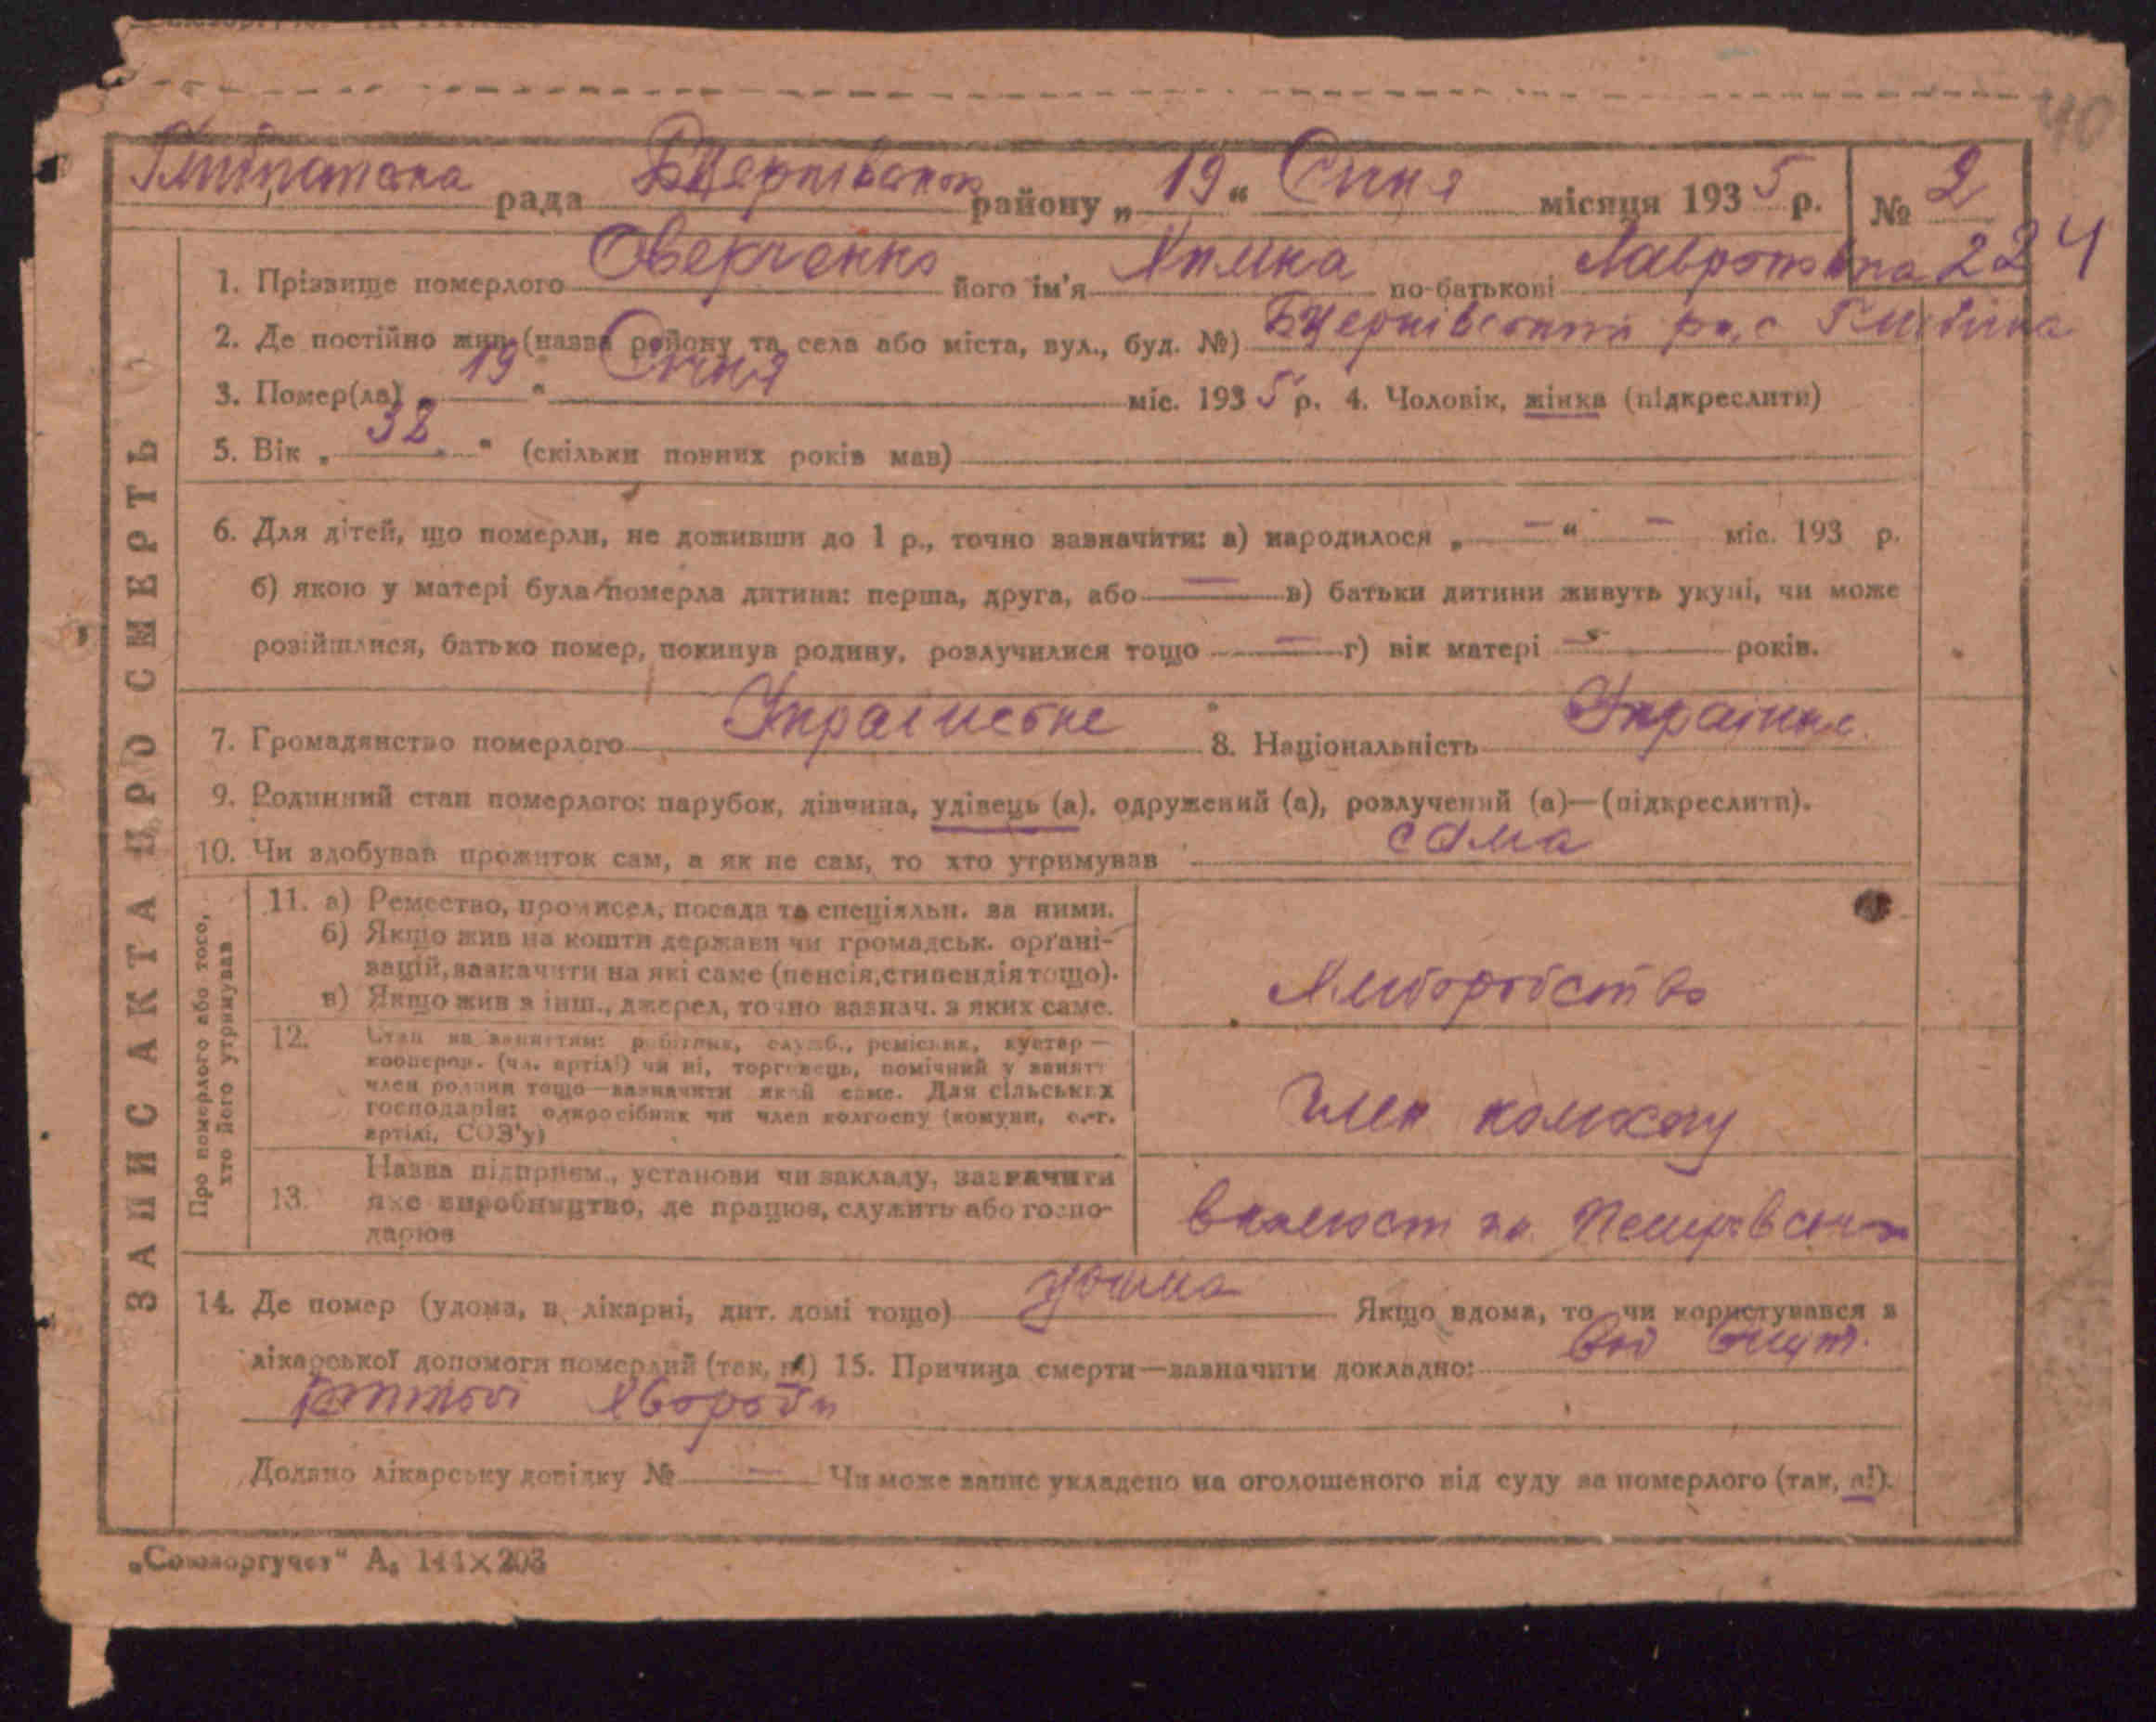 40
рада Бчернівського району „19“ Січня місяця 1935 р. № 2
224
1. Прізвище померлого Оверченко його ім'я Химка по-батькові Лавроновна
2. Де постійно жив (назва району та села або міста, вул., буд. №) Бчернівський р.,с
3. Помер(ла) „19“ Січня міс. 1935 р. 4. Чоловік, жінка (підкреслити)
5. Вік „38“ (скільки повних років мав)
6. Для дітей, що померли, не доживши до 1 р., точно зазначити: а) народилося „ — “ — міс. 193 р.
б) якою у матері була померла дитина: перша, друга, або — в) батьки дитини живуть укупі, чи може
розійшлися, батько помер, покинув родину, розлучилися тощо — г) вік матері — років.
7. Громадянство померлого Українське 8. Національність Українка
9. Родинний стан померлого: парубок, дівчина, удівець (а), одружений (а), розлучений (а)—(підкреслити).
10. Чи здобував прожиток сам, а як не сам, то хто утримував сама
ЗАПИС АКТА ПРО СМЕРТЬ
Про померлого або того,
хто його утримував
11. а) Ремество, промисел, посада та спеціяльн. за ними.
б) Якщо жив на кошти держави чи громадськ. органі-
зацій, зазначити на які саме (пенсія, стипендія тощо).
в) Якщо жив з інш., джерел, точно зазнач. з яких саме.
Хліборобство
12. Стан за заняттям: робітник, служб., ремісник, кустар—
кооперов. (чл. артілі) чи ні, торговець, помічний у занятт
член родини тощо—зазначити який саме. Для сільських
господарів: одноосібник чи член колгоспу (комуни, с.-г.
артілі, СОЗ'у)
Член колхозу
13. Назва підприєм., установи чи закладу, зазначити
яке виробництво, де працює, служить або госпо-
дарює
14. Де помер (удома, в лікарні, дит. домі тощо) удома Якщо вдома, то чи користувався з
лікарської допомоги померлий (так, ні) 15. Причина смерти—зазначити докладно: Від
хвороби
Додано лікарську довідку № — Чи може запис укладено на оголошеного від суду за померлого (так, ні).
„Союзоргучет“ А₅ 144×203